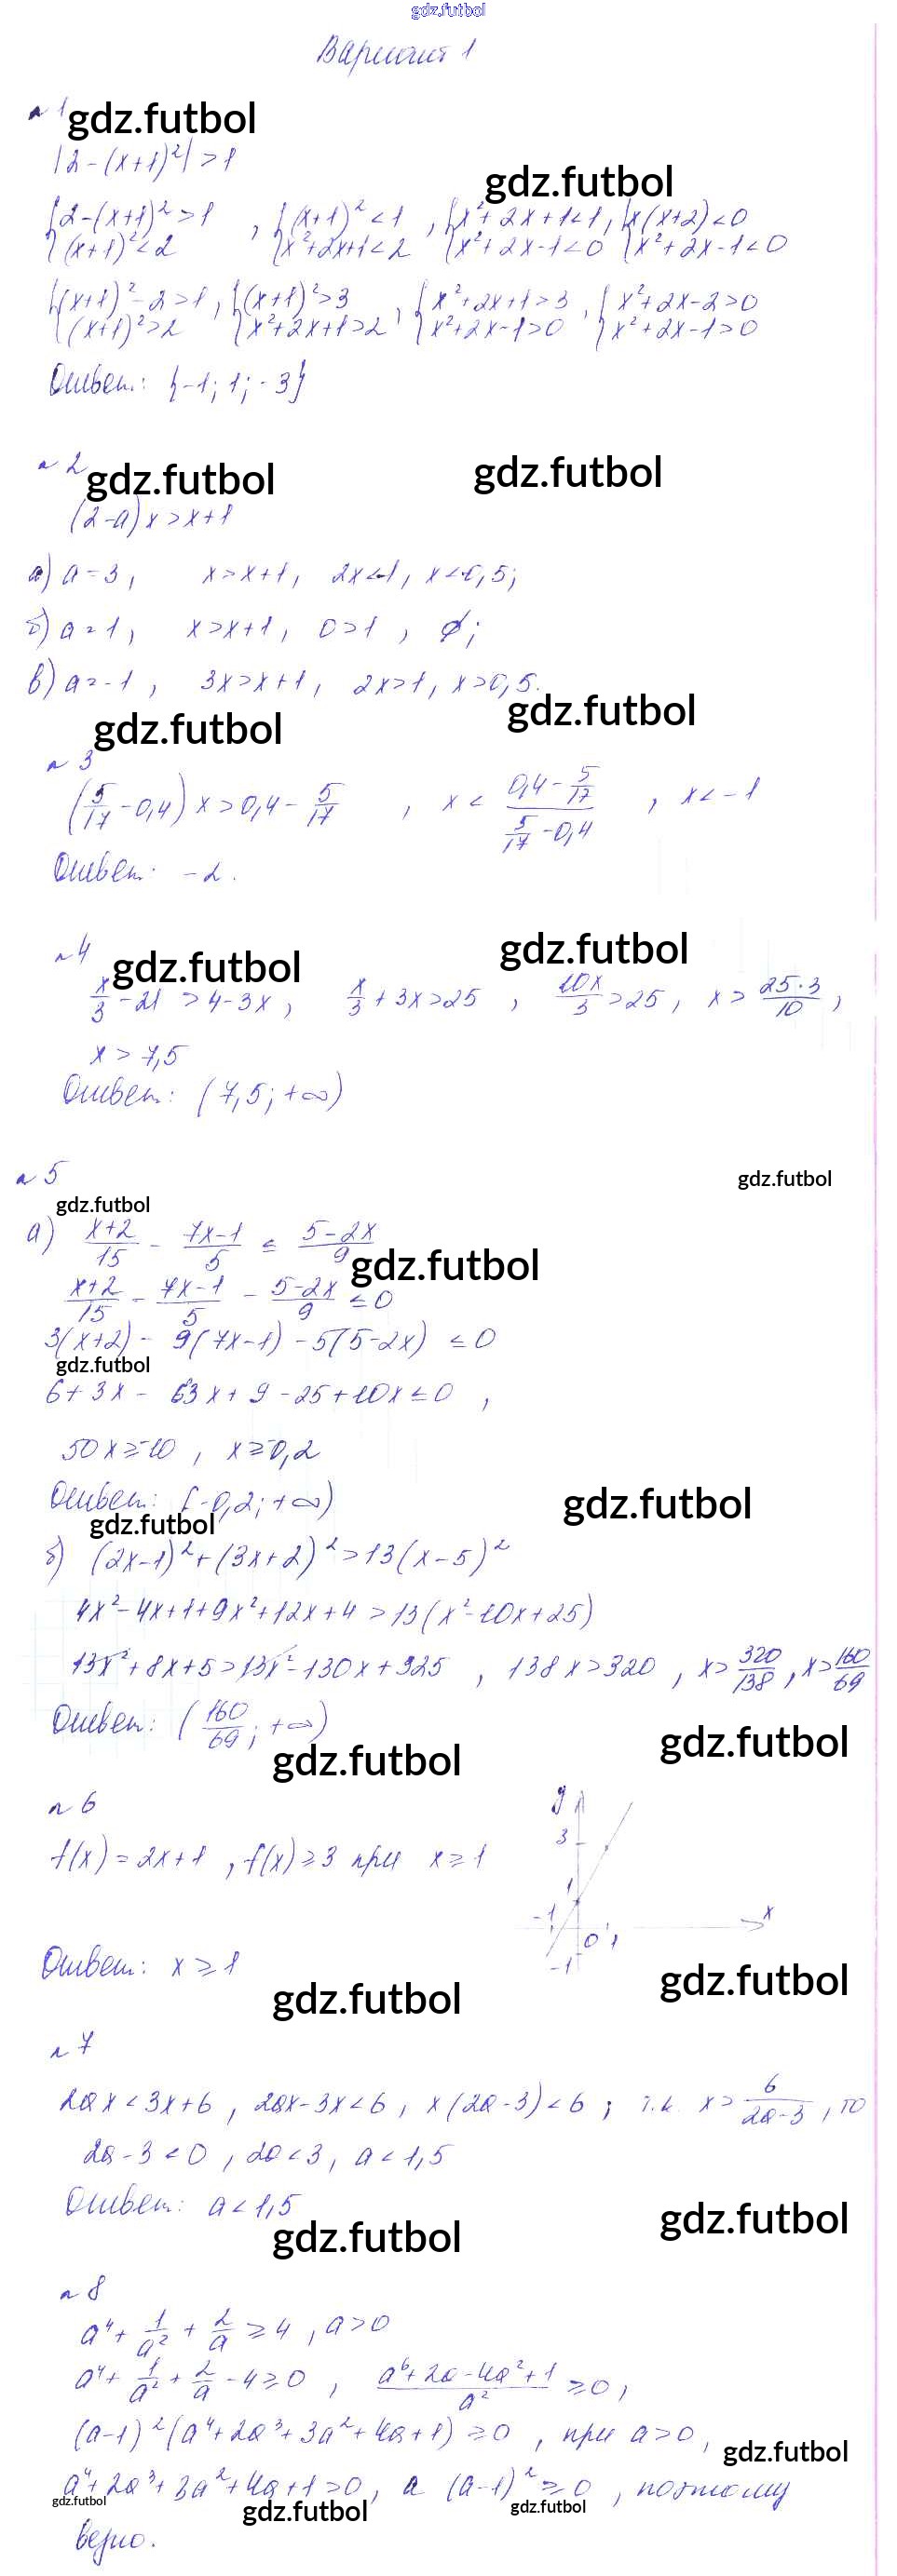 gdz.futbol
Вариант 1
№1 gdz.futbol
|2-(x+1)²|>1
gdz.futbol
{2-(x+1)²>1 , {(x+1)²<1 , {x²+2x+1<1, {x(x+2)<0
{(x+1)²<2 {x²+2x+1<2 {x²+2x-1<0 {x²+2x-1<0
{(x+1)²-2>1, {(x+1)²>3 , {x²+2x+1>3 , {x²+2x-2>0
{(x+1)²>2 {x²+2x+1>2 {x²+2x-1>0 {x²+2x-1>0
Ответ: {-1; 1; -3}
№2 gdz.futbol gdz.futbol
(2-a)x>x+1
а) a=3, x>x+1, 2x<-1, x<-0,5;
б) a=1, x>x+1, 0>1, ∅;
в) a=-1, 3x>x+1, 2x>1, x>0,5.
gdz.futbol gdz.futbol
№3
(5/17-0,4)x>0,4-5/17 , x< (0,4-5/17)/(5/17-0,4) , x<-1
Ответ: -2.
№4 gdz.futbol gdz.futbol
x/3-21>4-3x, x/3+3x>25 , 10x/3>25, x>25·3/10,
x>7,5
Ответ: (7,5; +∞)
№5 gdz.futbol
gdz.futbol
а) (x+2)/15 - (7x-1)/5 ≤ (5-2x)/9
gdz.futbol
(x+2)/15 - (7x-1)/5 - (5-2x)/9 ≤0
3(x+2) - 9(7x-1) - 5(5-2x) ≤0
gdz.futbol
6+3x-63x+9-25+10x≤0 ,
50x≥-10 , x≥-0,2
Ответ: [-0,2; +∞)
gdz.futbol gdz.futbol
б) (2x-1)²+(3x+2)²>13(x-5)²
4x²-4x+1+9x²+12x+4>13(x²-10x+25)
13x²+8x+5>13x²-130x+325 , 138x>320 , x>320/138, x>160/69
Ответ: (160/69; +∞)
gdz.futbol gdz.futbol
№6
f(x)=2x+1 , f(x)≥3 при x≥1
y
3
1
-1 0 1 x
-1
Ответ: x≥1
gdz.futbol gdz.futbol
№7
2ax<3x+6 , 2ax-3x<6, x(2a-3)<6 ; т.к. x>6/(2a-3), то
2a-3<0 , 2a<3, a<1,5
Ответ: a<1,5
gdz.futbol gdz.futbol
№8
a⁴+1/a²+2/a≥4 , a>0
a⁴+1/a²+2/a-4≥0 , (a⁶+2a-4a²+1)/a² ≥0,
(a-1)²(a⁴+2a³+3a²+4a+1)≥0 , при a>0,
gdz.futbol
a⁴+2a³+3a²+4a+1>0, а (a-1)²≥0 , поэтому
gdz.futbol gdz.futbol gdz.futbol
верно.